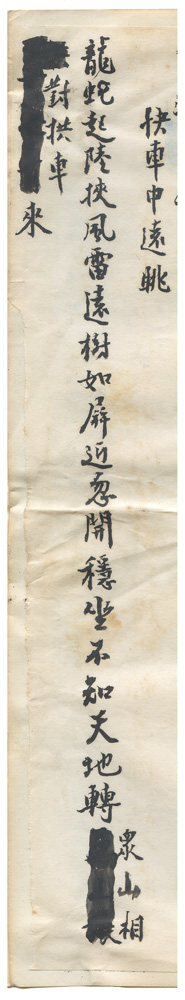 快車中遠眺
龍蛇起陸挾風雷遠樹如屏近忽開穩坐不知天地轉
衆山相
對拱車
來